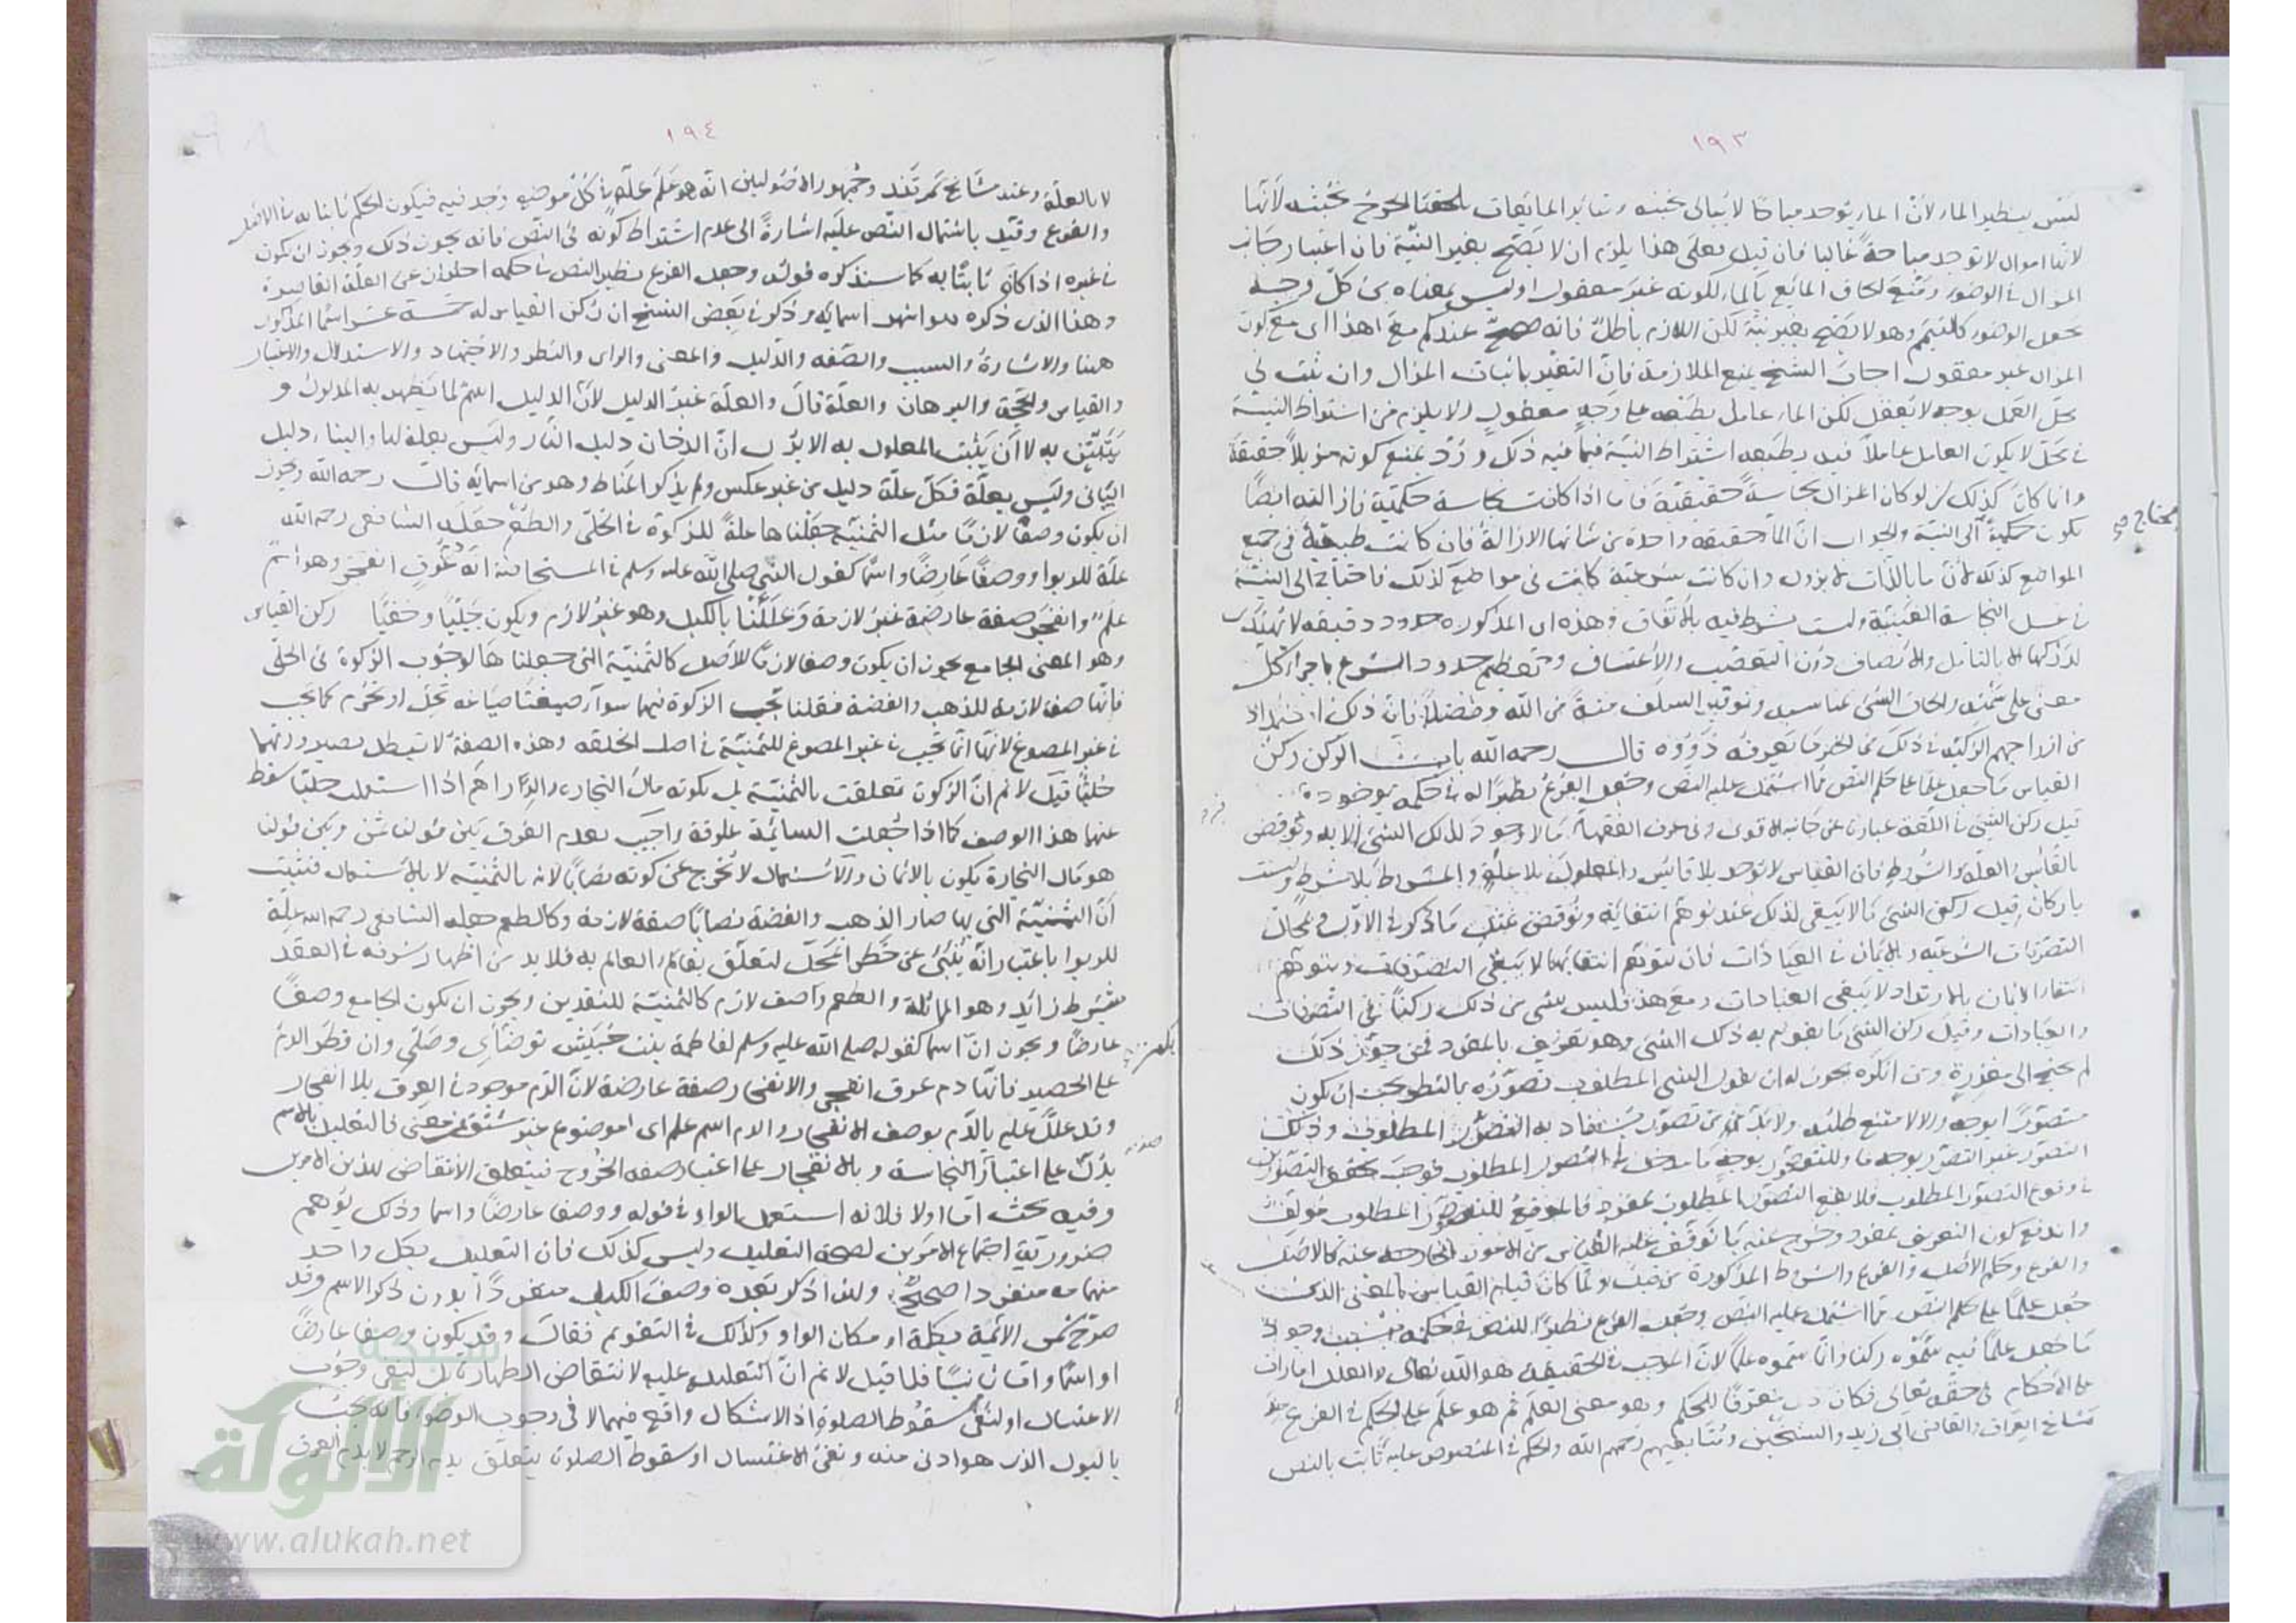 ١٩٣
ليس بنظير الماء لأن الماء يوجد مباحا لا يبالى بخبثه وسائر المائعات يلحقنا الحرج بخبثه لأنها
لانها اموال لا توجد مباحة غالبا فان قيل فعلى هذا يلزم ان لا يصح بغير النية فان اعتبار جانب
المزال فى الوضوء ومنع لحاق المائع بالماء لكونه غير معقول اوليس بمعناه من كل وجه
يجعل الوضوء كالتيمم وهو لا يصح بغير نية لكن اللازم باطل فانه صح عندكم مع هذا اى مع كون
المزال غير معقول اجاب الشيخ بمنع الملازمة فان التغير باثبات المزال وان ثبت فى
محل العمل بوجه لا يعقل لكن الماء عامل بطبعه على وجه معقول ولا يلزم من اشتراط النية
فى محل لا يكون العامل عاملا فيه بطبعه اشتراط النية فيما فيه ذلك ورد بمنع كونه مزيلا حقيقة
وانما كان كذلك لو كان المزال نجاسة حقيقية فاما اذا كانت نجاسة حكمية فازالته ايضا
تكون حكمية الى النية والجواب ان الماء حقيقة واحدة من شانها الازالة فان كانت طبيعية فى جميع
محتاج صح
المواضع كذلك لان ما بالذات لا يزول وان كانت شرعية كانت فى مواضع كذلك فاحتاج الى النية
فى غسل النجاسة العينية وليست بشرط فيه بالاتفاق وهذه اى المذكورة حدود دقيقة لا يهتدى
لدركها الا بالتامل والانصاف دون التعصب والاعتساف وتعظيم حدود الشرع باجراء كل
معنى على سننه والحاق الشئ بمناسبه وتوقير السلف منة من الله وفضلا فان ذلك
قال رحمه الله باب الركن ركن
القياس ما جعل علما على حكم النص مما اشتمل عليه النص وجعل الفرع نظيرا له فى حكمه بوجوده
قيل ركن الشئ فى اللغة عبارة عن جانبه الاقوى وفى عرف الفقهاء ما لا وجود لذلك الشئ الا به ونوقض
بالقائس والعلة والشروط فان القياس لا توجد بلا قائس والمعلول بلا علة والمشروط بلا شرط وليست
باركان وقيل ركن الشئ ما لا يبقى لذلك عند توهم انتفائه ونوقض عنه ما ذكر فى الاول
التصرفات الشرعية والايمان فى العبادات فان بتوهم انتفائها لا يبقى التصرفات وبتوهم
انتفاء الايمان بالارتداد لا يبقى العبادات ومع هذا فليس شئ من ذلك ركنا فى التصرفات
والعبادات وقيل ركن الشئ ما يقوم به ذلك الشئ وهو تعريف بالمفرد فمن جوز ذلك
لم يحتج الى معذرة ومن انكره يجوز له ان يقول الشئ المطلوب تصوره بالنظر يجب ان يكون
متصورا بوجه والا لامتنع طلبه ولا بد من تصور يستفاد به التصور المطلوب وذلك
التصور غير التصور بوجه ما وللتصور بوجه ما مدخل فى التصور المطلوب فوجب تحقق التصورين
فى وقوع التصور المطلوب فلا يقع التصور المطلوب بمفرد فالموقع للتصور المطلوب مؤلف
واندفع كون التعريف بمفرد وخرج عنه ما توقف عليه القياس من الامور الخارجة عنه كالاصل
والفرع وحكم الاصل والفرع والشروط المذكورة من قبل ولما كان قيام القياس بالمعنى الذى
جعل علما على حكم النص مما اشتمل عليه النص وجعل الفرع نظيرا للنص فى حكمه بسبب وجود
ما جعل علما فيه سموه ركنا وانما سموه علما لان الموجب فى الحقيقة هو الله تعالى والعلل امارات
على الاحكام فى حقه تعالى فكان معرفا للحكم وهو معنى العلم ثم هو علم على الحكم فى الفرع عند
مشايخ العراق والقاضى ابى زيد والشيخين ومتابعيهم رحمهم الله والحكم فى المنصوص عليه ثابت بالنص
١٩٤
لا بالعلة وعند مشايخ سمرقند وجمهور الاصوليين انه هو علم عليه فى كل موضع وجد فيه فيكون الحكم ثابتا به فى الاصل
والفرع وقيد باشتمال النص عليه اشارة الى عدم اشتراط كونه فى النص فانه يجوز ذلك ويجوز ان يكون
فى غيره اذا كان ثابتا به كما سنذكره قوله وجعل الفرع نظير النص فى حكمه احتراز عن العلة القاصرة
وهذا الذى ذكره هو اشهر اسمائه وذكر فى بعض النسخ ان ركن القياس له خمسة عشر اسما المذكور
ههنا والاشارة والسبب والصفة والدليل والمعنى والراى والنظر والاجتهاد والاستدلال والاعتبار
والقياس والحجة والبرهان والعلة قال والعلة غير الدليل لان الدليل اسم لما يظهر به المدلول و
يتبين به لا ان يثبت المعلول به الا يرى ان الدخان دليل النار وليس بعلة لها والبناء دليل
البانى وليس بعلة فكل علة دليل من غير عكس ولم يذكر المناط وهو من اسمائه قال رحمه الله ويجوز
ان يكون وصفا لازما مثل الثمنية جعلناها علة للزكوة فى الحلى والطعم جعله الشافعى رحمه الله
علة للربوا ووصفا عارضا واسما كقول النبى صلى الله عليه وسلم فى المستحاضة انه دم عرق انفجر وهو اسم
علم وانفجر صفة عارضة غير لازمة وعللنا بالكيل وهو غير لازم ويكون جليا وخفيا ركن القياس
وهو المعنى الجامع يجوز ان يكون وصفا لازما للاصل كالثمنية التى جعلناها لوجوب الزكوة فى الحلى
فانها صفة لازمة للذهب والفضة فقلنا تجب الزكوة فيهما سواء صيغتا صياغة تحل او تحرم كما تجب
فى غير المصوغ لانها انما تجب فى غير المصوغ للثمنية فى اصل الخلقة وهذه الصفة لا تبطل بصيرورتهما
حليا قيل لا نم ان الزكوة تعلقت بالثمنية بل بكونه مال التجارة والدراهم اذا استعملت حليا سقط
عنهما هذا الوصف كما اذا جعلت السائمة علوفة واجيب بعدم الفرق بين قولنا ثمن وبين قولنا
هو مال التجارة يكون بالاثمان والاستعمال لا تخرج عن كونه نصابا لانه بالثمنية لا بالاستعمال فثبت
ان الثمنية التى بها صار الذهب والفضة نصابا صفة لازمة وكالطعم جعله الشافعى رحمه الله علة
للربوا باعتبار انه ينبئ عن خطر المحل لتعلق بقاء العالم به فلا بد من اظهار شرفه فى العقد
بشرط زائد وهو المماثلة والطعم وصف لازم كالثمنية للنقدين ويجوز ان يكون الجامع وصفا
عارضا ويجوز ان اسما كقوله صلى الله عليه وسلم لفاطمة بنت حبيش توضاى وصلى وان قطر الدم
يكون صح
على الحصير فانها دم عرق انفجر والانفجار صفة عارضة لان الدم موجود فى العرق بلا انفجار
وقد علل عليم بالدم بوصف الانفجار والدم اسم علم اى موضوع غير مشتق من معنى فالتعليل بالاسم
يدل على اعتبار النجاسة وبالانفجار على اعتبار صفة الخروج فيتعلق الانتقاض للذين الامرين
وفيه بحث اما اولا فلانه استعمل بالواو فى قوله ووصفا عارضا واسما وذلك يوهم
ضرورية اجتماع الامرين لصحة التعليل وليس كذلك فان التعليل بكل واحد
منهما منفردا صحيح ولهذا ذكر بعده وصف الكيل منفردا بدون ذكر الاسم وقد
صرح شمس الائمة بكلمة او مكان الواو وكذلك فى التقويم فقال وقد يكون وصفا عارضا
او اسما واما ثانيا فلما قيل لا نم ان التعليل عليه لانتقاض الطهارة بل لنفى وجوب
الاغتسال او لنفى سقوط الصلوة اذ الاشكال واقع فيهما لا فى وجوب الوضوء فانه يجب
بالبول الذى هو ادنى منه ونفى الاغتسال او سقوط الصلوة يتعلق بدم الرحم لا بدم العرق
شبكة
الألوكة
www.alukah.net